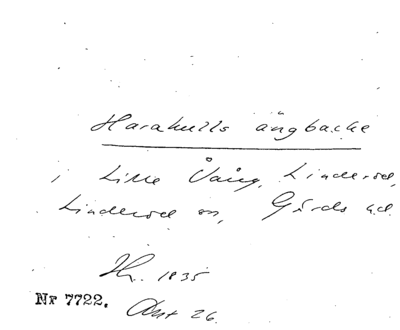 Harakulls ängbacke
i Lille Vång, Linderöd,
Linderöd sn, Gärds hd.
Hr. 1835
Nr 7722. Akt 26.